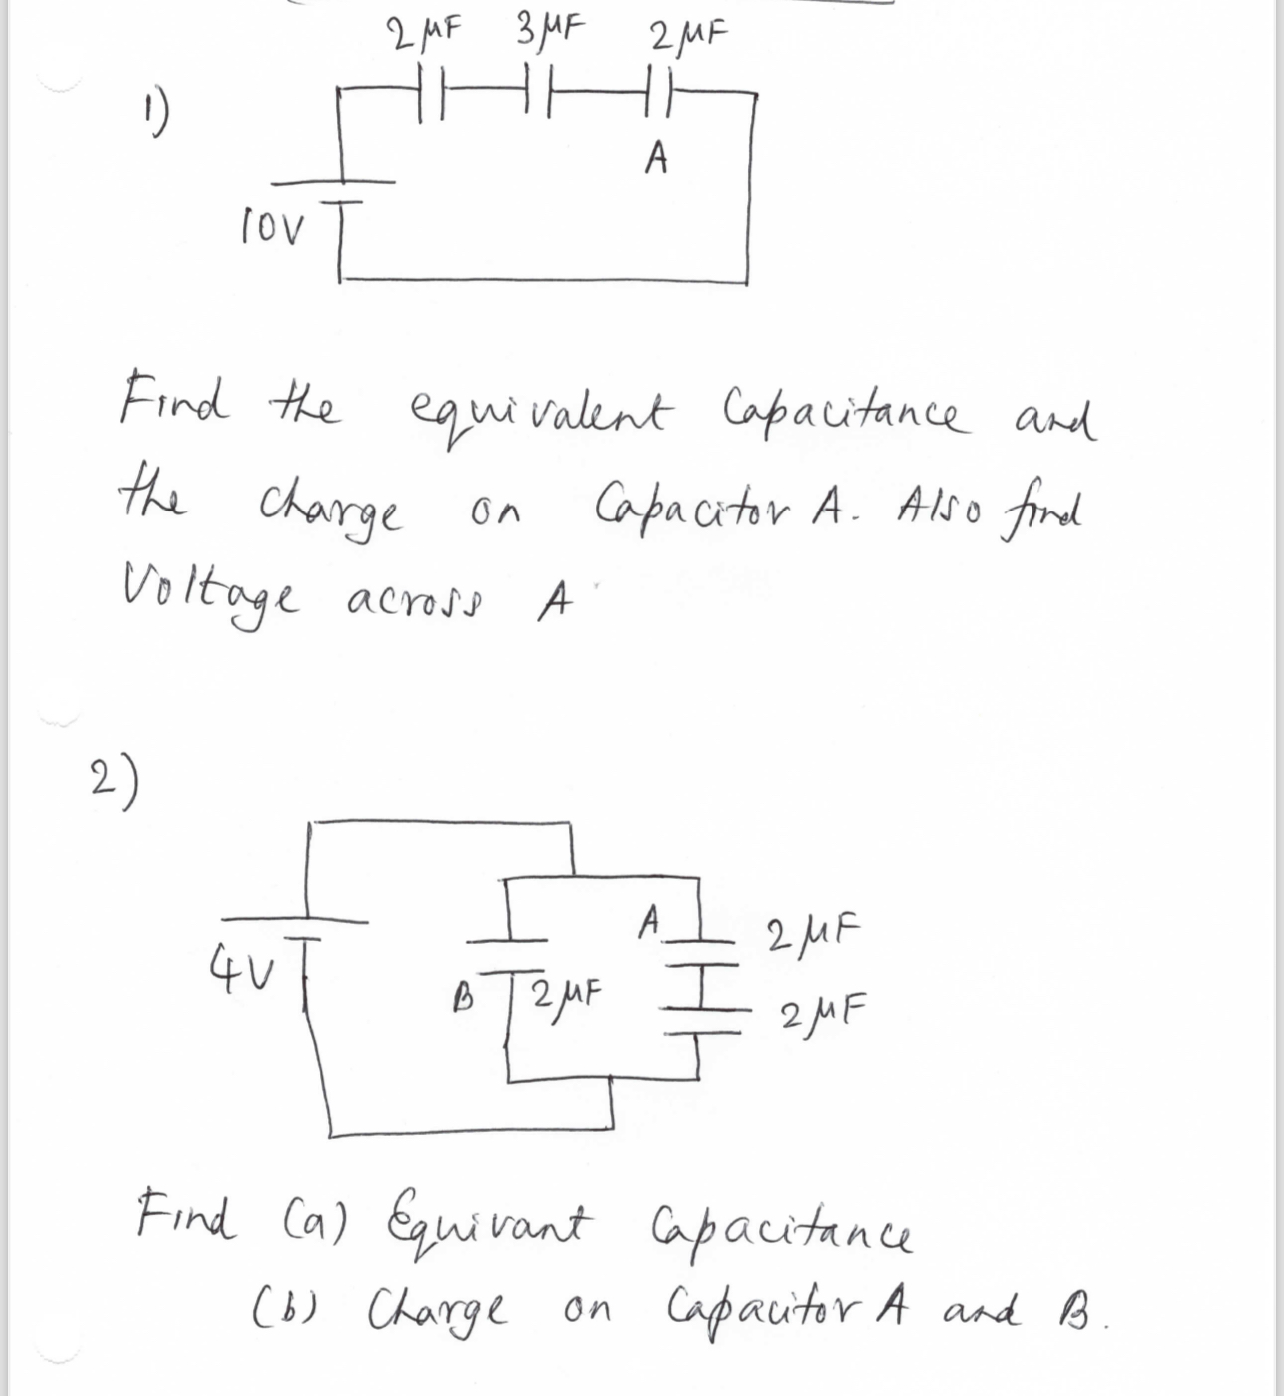 2 μF 3 μF 2 μF
1)
A
10V
Find the equivalent Capacitance and
the charge on Capacitor A. Also find
Voltage across A
2)
A 2 μF
4V B 2 μF 2 μF
Find (a) Equivant Capacitance
(b) Charge on Capacitor A and B.